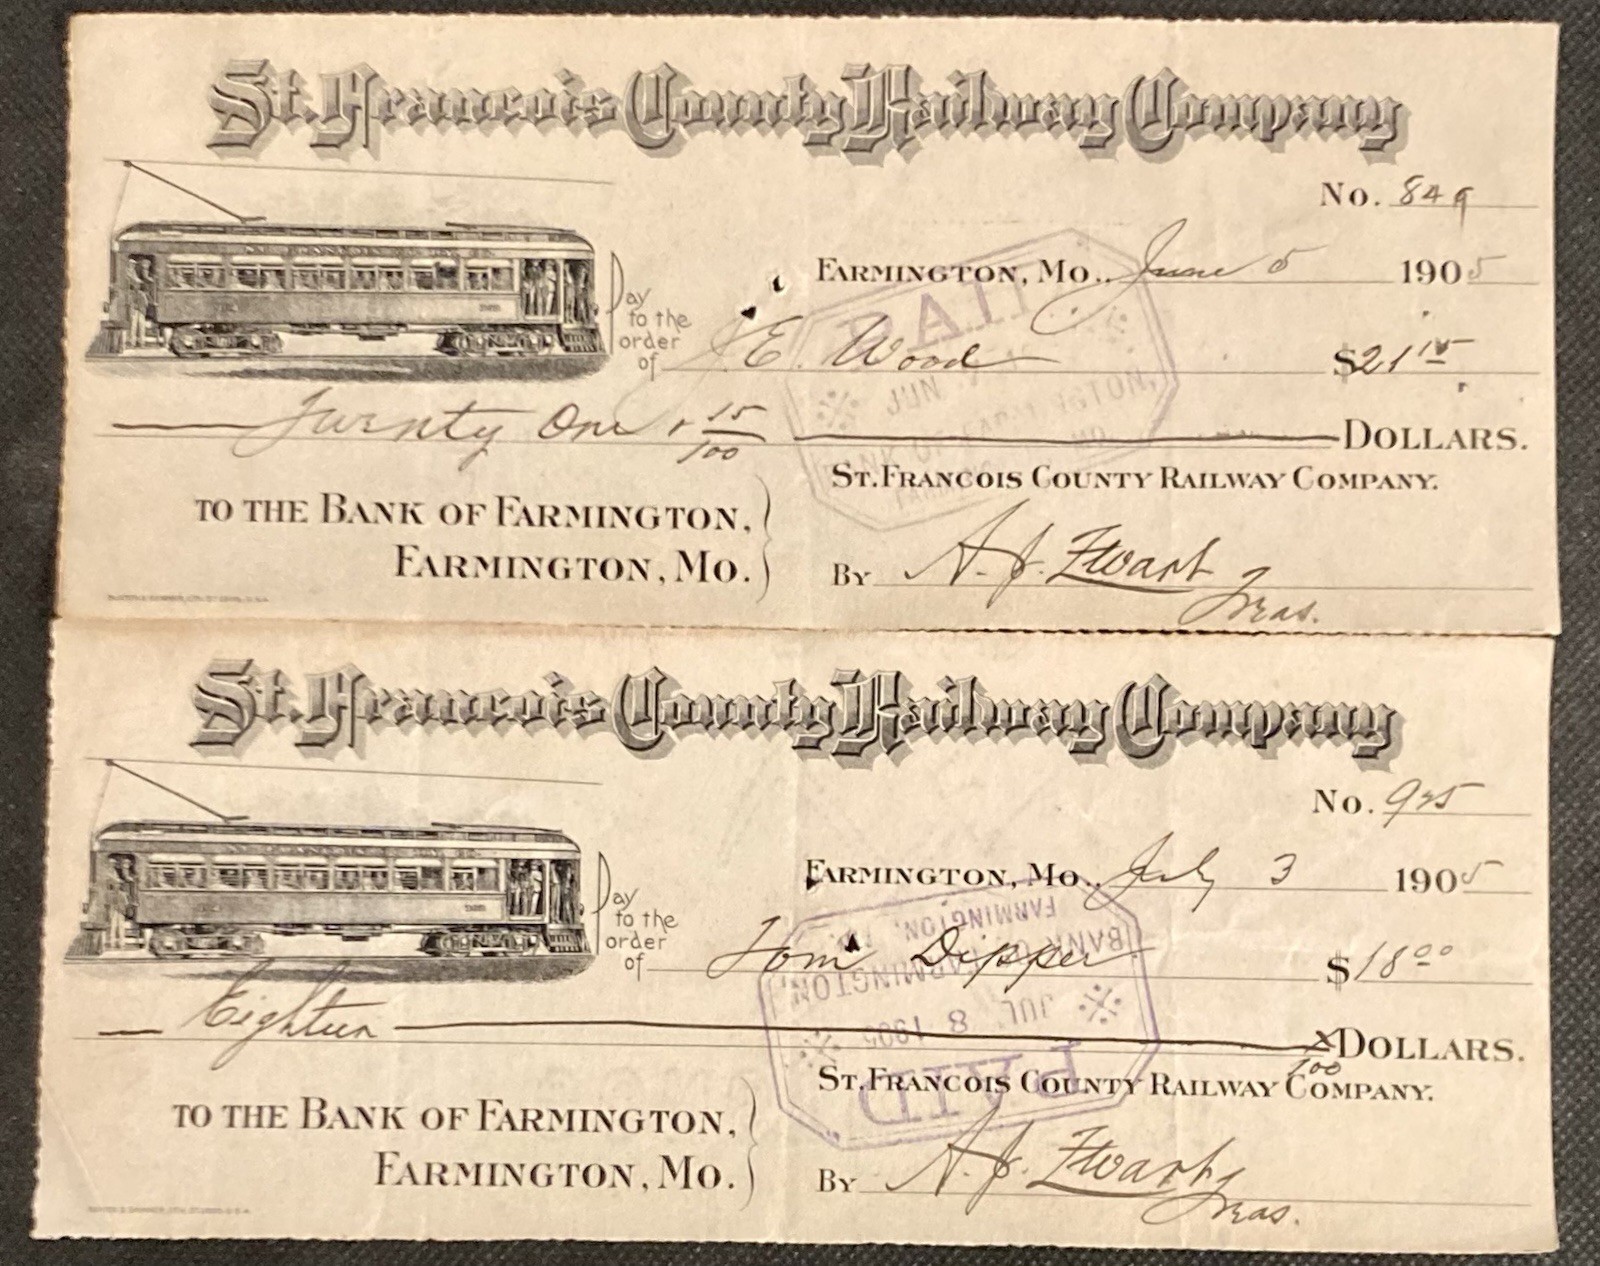 St. Francois County Railway Company
No. 849
Farmington, Mo., June 5 1905
Pay to the order of J E. Wood $21 15
Twenty One & 15/100 Dollars.
PAID
JUN
BANK OF FARMINGTON,
FARMINGTON, MO.
St. Francois County Railway Company.
to the Bank of Farmington,
Farmington, Mo.
By
Treas.
St. Francois County Railway Company
No. 925
Farmington, Mo., July 3 1905
Pay to the order of Tom Dipper $18 00
Eighteen x/100 Dollars.
PAID
JUL 8 1905
BANK OF FARMINGTON,
FARMINGTON, MO.
St. Francois County Railway Company.
to the Bank of Farmington,
Farmington, Mo.
By
Treas.